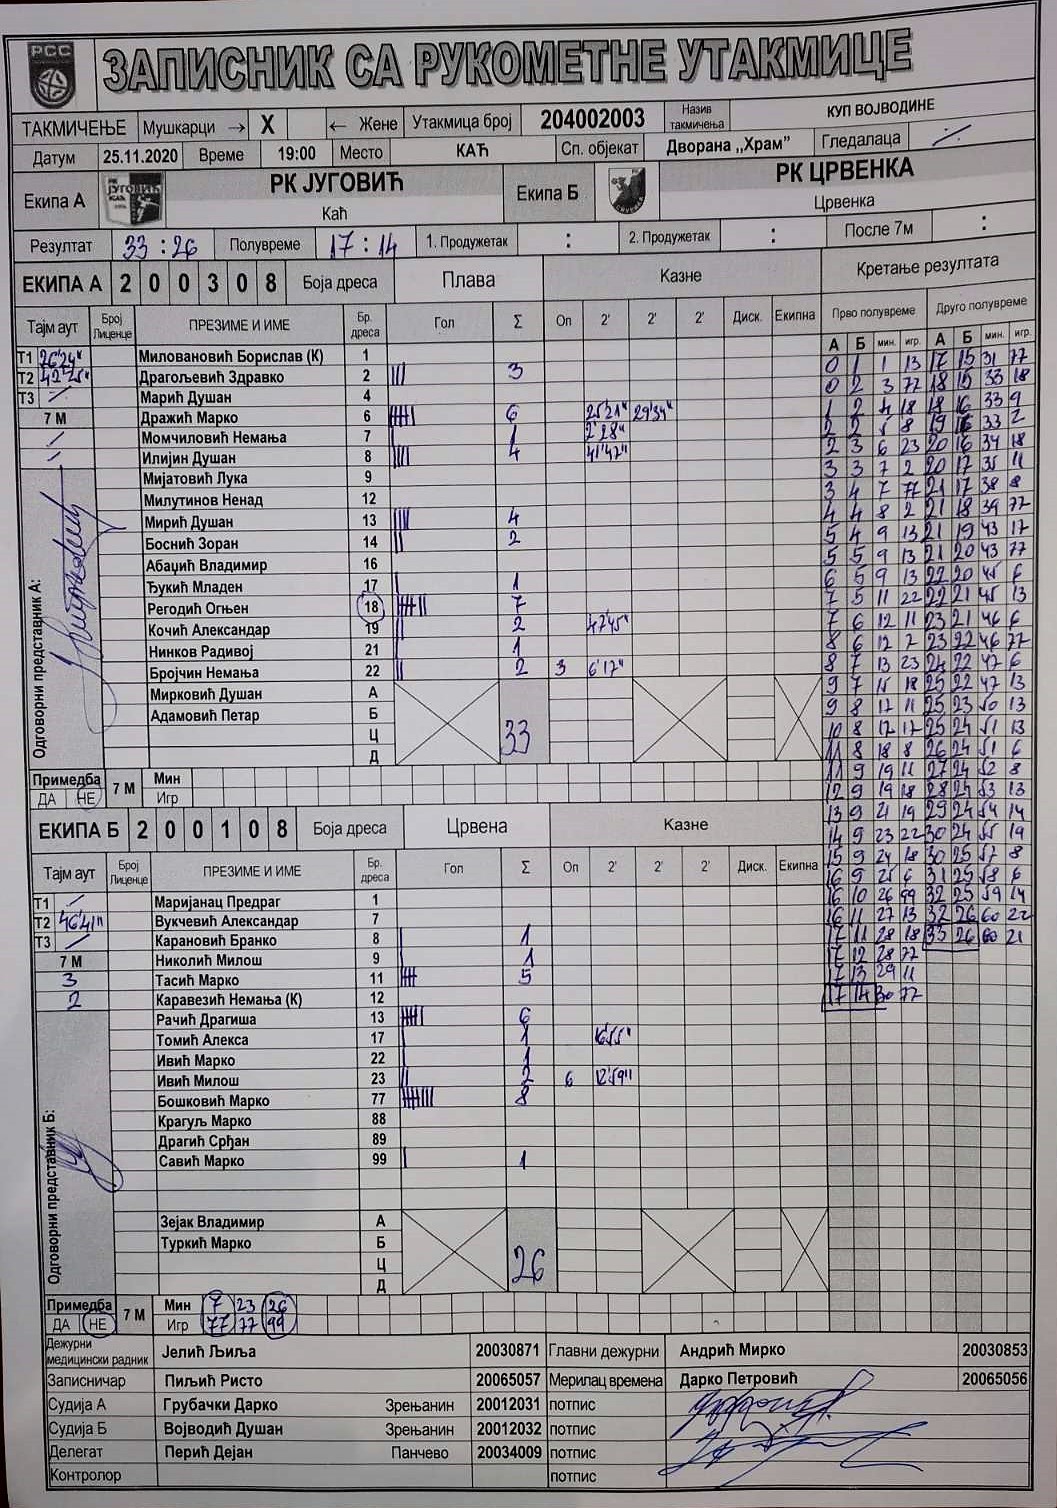 РСС
ЗАПИСНИК СА РУКОМЕТНЕ УТАКМИЦЕ
ТАКМИЧЕЊЕ Мушкарци → X ← Жене Утакмица број 204002003 Назив такмичења КУП ВОЈВОДИНЕ
Датум 25.11.2020 Време 19:00 Место КАЋ Сп. објекат Дворана ,,Храм" Гледалаца
Екипа А РК ЈУГОВИЋ Каћ Екипа Б РК ЦРВЕНКА Црвенка
Резултат 33 : 26 Полувреме 17 : 14 1. Продужетак : 2. Продужетак : После 7м :
ЕКИПА А 2 0 0 3 0 8 Боја дреса Плава Казне Кретање резултата
Тајм аут Број Лиценце ПРЕЗИМЕ И ИМЕ Бр. дреса Гол Σ Оп 2' 2' 2' Диск. Екипна Прво полувреме Друго полувреме
А Б мин. игр. А Б мин. игр.
Т1 26'24" Миловановић Борислав (К) 1
Т2 42'25" Драгољевић Здравко 2 3
Т3 Марић Душан 4
7 М Дражић Марко 6 6 25'21" 29'34"
Момчиловић Немања 7 1 2'28"
Илијин Душан 8 4 41'42"
Мијатовић Лука 9
Милутинов Ненад 12
Мирић Душан 13 4
Боснић Зоран 14 2
Абаџић Владимир 16
Ђукић Младен 17 1
Регодић Огњен 18 7
Кочић Александар 19 2 47'45"
Нинков Радивој 21 1
Бројчин Немања 22 2 3 6'17"
Мирковић Душан А
Адамовић Петар Б
Ц
Д
33
Одговорни представник А:
Примедба ДА НЕ 7 М Мин Игр
ЕКИПА Б 2 0 0 1 0 8 Боја дреса Црвена Казне
Тајм аут Број Лиценце ПРЕЗИМЕ И ИМЕ Бр. дреса Гол Σ Оп 2' 2' 2' Диск. Екипна
Т1 Маријанац Предраг 1
Т2 46'41" Вукчевић Александар 7
Т3 Карановић Бранко 8 1
7 М Николић Милош 9 1
3 Тасић Марко 11 5
2 Каравезић Немања (К) 12
Рачић Драгиша 13 6
Томић Алекса 17 1 16'55"
Ивић Марко 22 1
Ивић Милош 23 2 6 12'59"
Бошковић Марко 77 8
Крагуљ Марко 88
Драгић Срђан 89
Савић Марко 99 1
Зејак Владимир А
Туркић Марко Б
Ц
Д
26
Одговорни представник Б:
Примедба ДА НЕ 7 М Мин 7 23 26
Игр 77 77 99
0 1 1 13 17 15 31 77
0 2 3 77 18 15 33 18
1 2 4 18 18 16 33 9
2 2 5 8 19 16 33 2
2 3 6 23 20 16 34 18
3 3 7 2 20 17 35 11
3 4 7 77 21 17 38 8
4 4 8 2 21 18 39 77
5 4 9 13 21 19 43 17
5 5 9 13 21 20 43 77
6 5 9 13 22 20 45 6
7 5 11 22 22 21 45 13
7 6 12 11 23 21 46 6
8 6 12 2 23 22 46 77
8 7 13 23 24 22 47 6
9 7 15 18 25 22 47 13
9 8 17 11 25 23 50 13
10 8 17 17 25 24 51 13
11 8 18 8 26 24 51 6
11 9 19 11 27 24 52 8
12 9 19 18 28 24 53 13
13 9 21 19 29 24 54 14
14 9 23 22 30 24 55 19
15 9 24 18 30 25 57 8
16 9 25 6 31 25 58 6
16 10 26 99 32 25 59 14
16 11 27 13 32 26 60 22
17 11 28 18 33 26 60 21
17 12 28 77
17 13 29 11
17 14 30 77
Дежурни медицински радник Јелић Љиља 20030871 Главни дежурни Андрић Мирко 20030853
Записничар Пиљић Ристо 20065057 Мерилац времена Дарко Петровић 20065056
Судија А Грубачки Дарко Зрењанин 20012031 потпис
Судија Б Војводић Душан Зрењанин 20012032 потпис
Делегат Перић Дејан Панчево 20034009 потпис
Контролор потпис